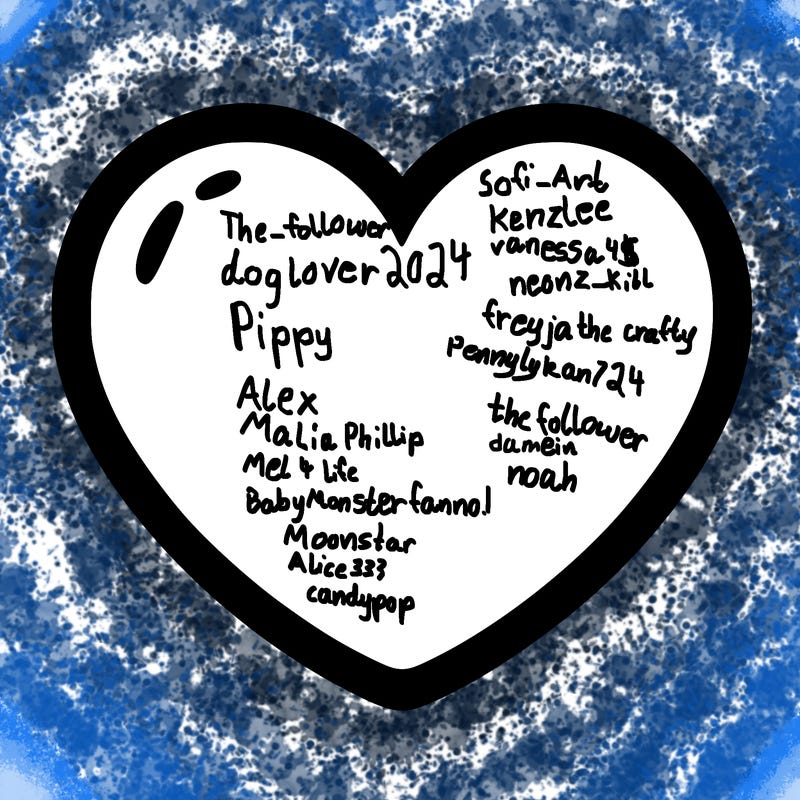 The_follower
doglover2024
Pippy
Alex
Malia Phillip
Mel 4 life
BabyMonsterfanno.1
Moonstar
Alice333
candypop
Sofi_Art
Kenzlee
vanessa4$
neonz_kill
freyja the crafty
Pennylykan724
the follower
damein
noah